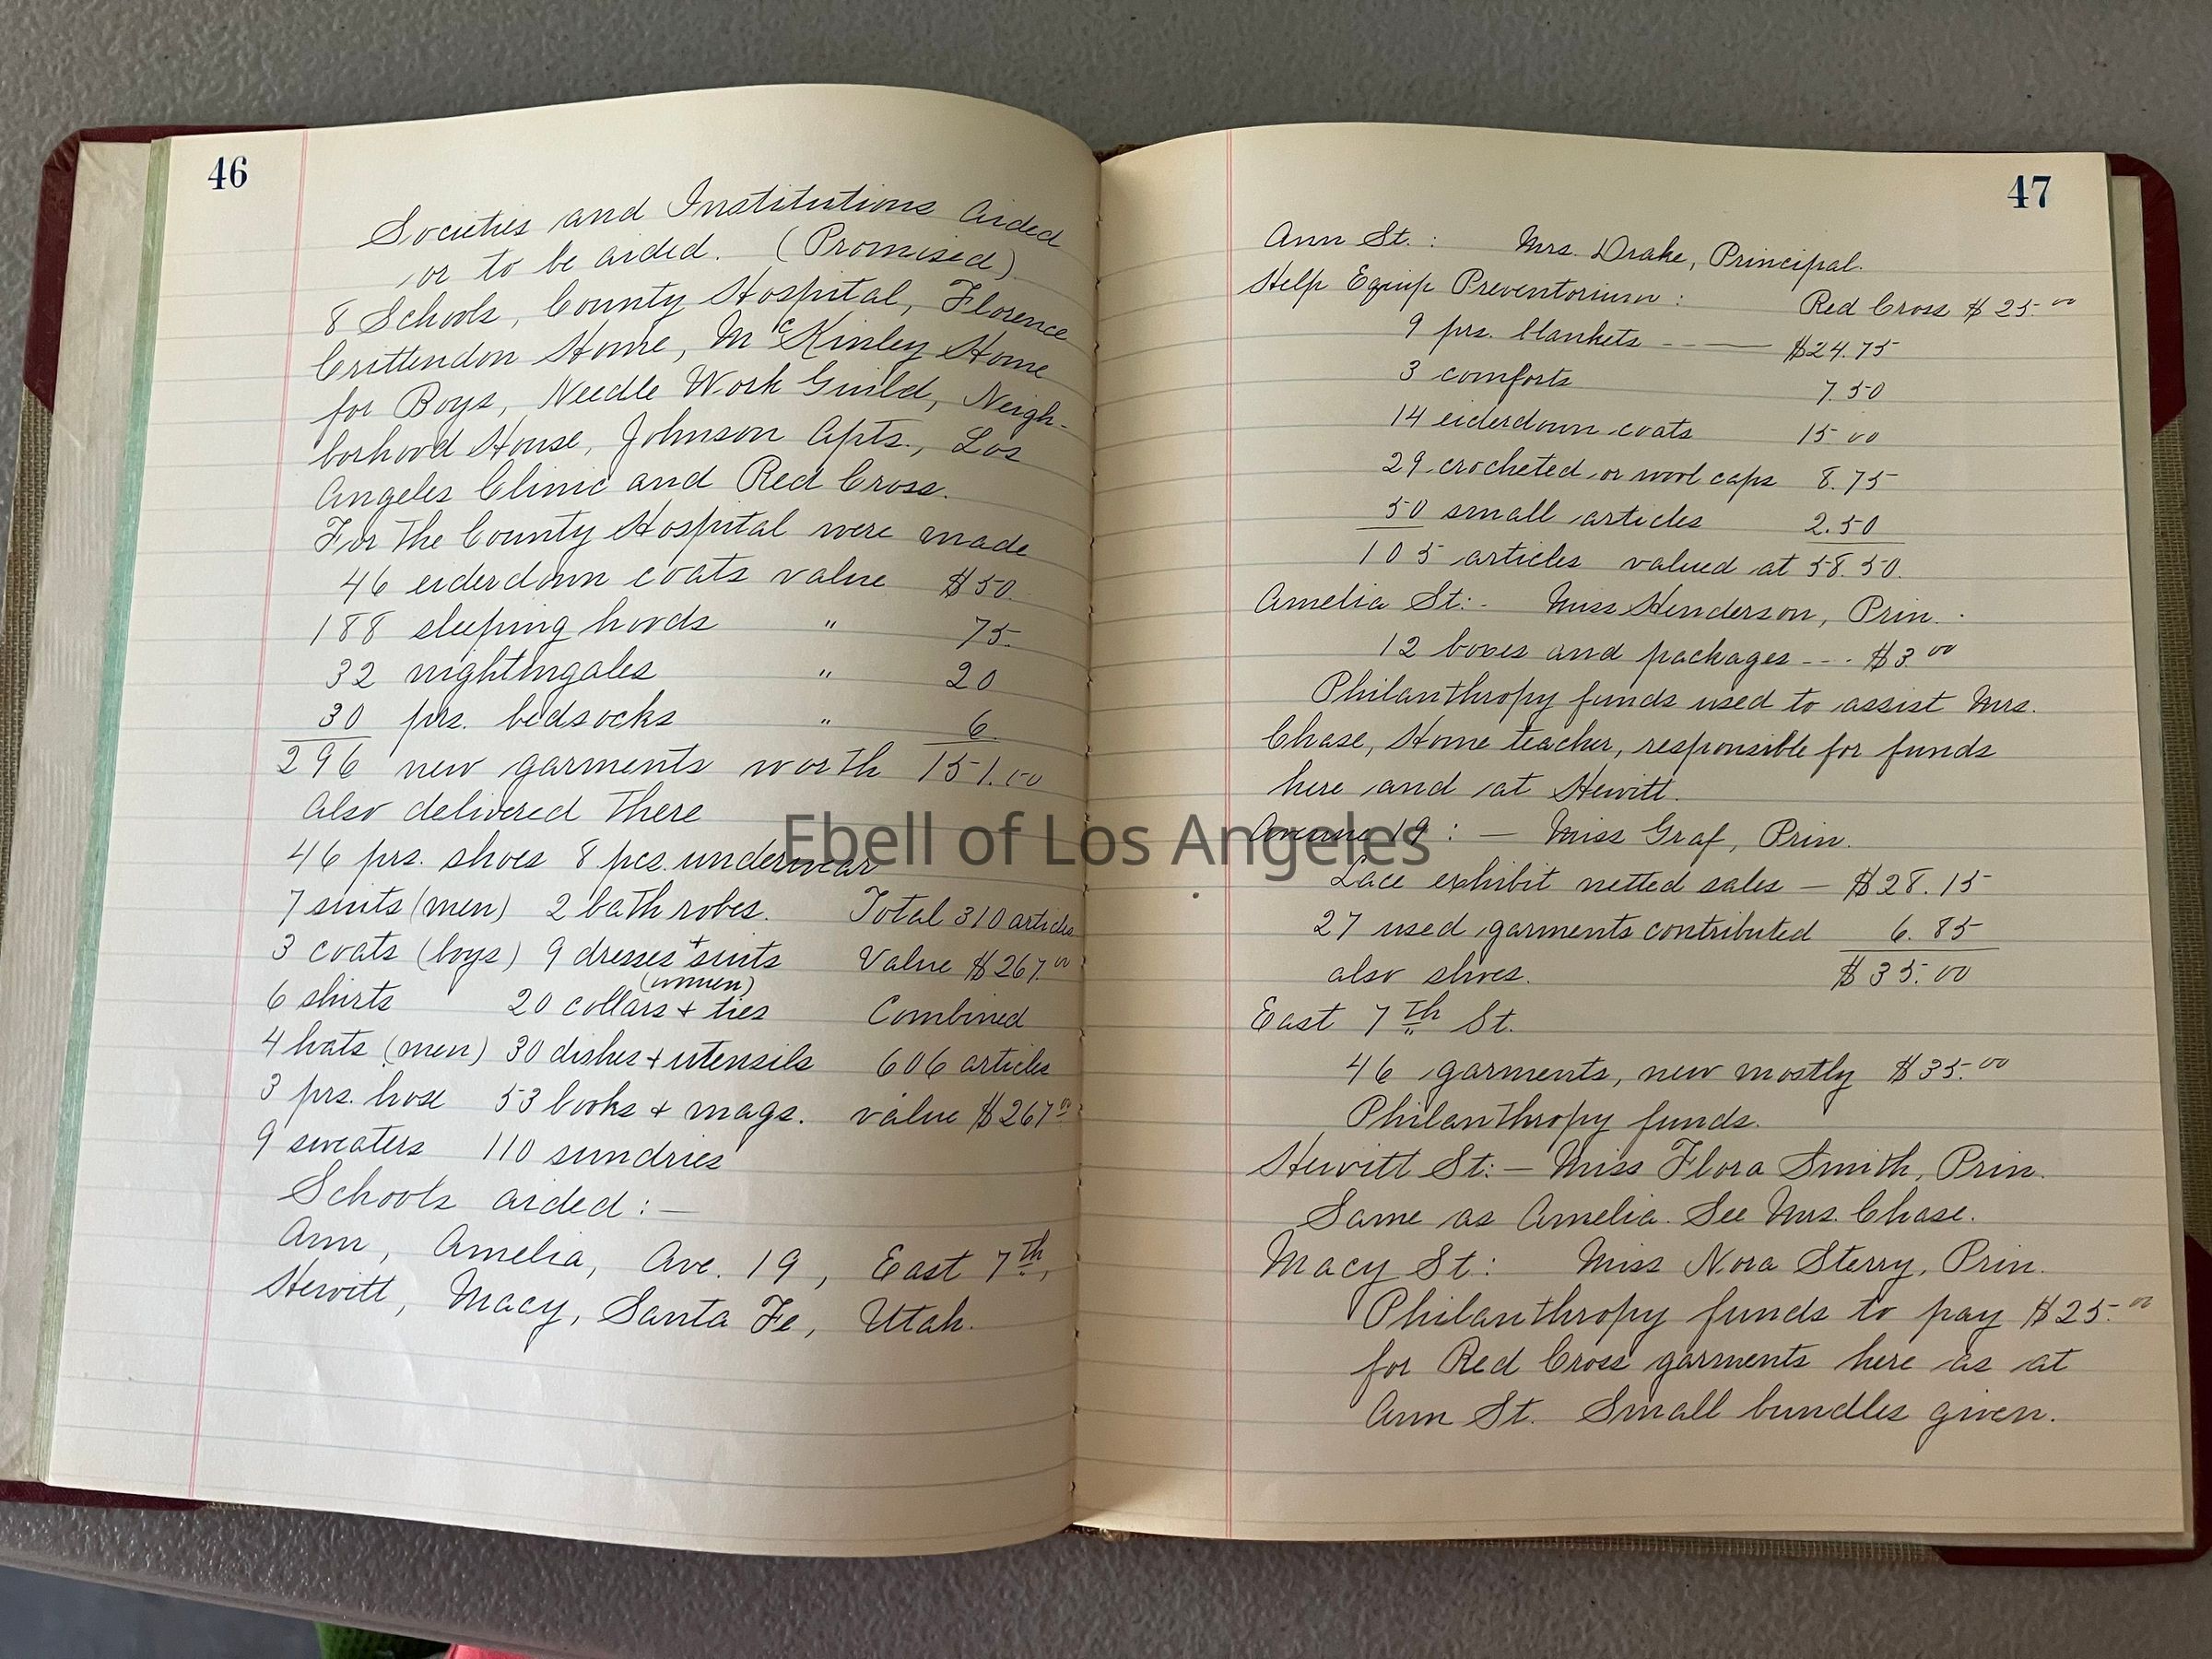 46
Societies and Institutions Aided
or to be aided. (Promised)
8 Schools, County Hospital, Florence
Crittendon Home, McKinley Home
for Boys, Needle Work Guild, Neigh-
borhood House, Johnson Apts., Los
Angeles Clinic and Red Cross.
For the County Hospital were made
46 eiderdown coats value $50.
188 sleeping hoods " 75.
32 nightingales " 20
30 prs. bedsocks " 6.
296 new garments worth 151.00
Also delivered there
46 prs. shoes 8 pcs. underwear
7 suits (men) 2 bath robes. Total 310 articles
3 coats (boys) 9 dresses + suits Value $267.00
(women)
6 shirts 20 collars + ties Combined
4 hats (men) 30 dishes + utensils 606 articles
3 prs. hose 53 books + mags. value $267.00
9 sweaters 110 sundries
Schools aided:—
Ann, Amelia, Ave. 19, East 7th,
Hewitt, Macy, Santa Fe, Utah.
47
Ann St.: Mrs. Drake, Principal.
Help Equip Preventorium: Red Cross $25.00
9 prs. blankets --— $24.75
3 comforts 7.50
14 eiderdown coats 15.00
29 crocheted or wool caps 8.75
50 small articles 2.50
105 articles valued at 58.50.
Amelia St:- Miss Henderson, Prin.
12 boxes and packages --- $3.00
Philanthropy funds used to assist Mrs.
Chase, Home teacher, responsible for funds
here and at Hewitt.
Avenue 19: — Miss Graf, Prin.
Lace exhibit netted sales — $28.15
27 used garments contributed 6.85
also shoes. $35.00
East 7th St.
46 garments, new mostly $35.00
Philanthropy funds.
Hewitt St:— Miss Flora Smith, Prin.
Same as Amelia. See Mrs. Chase.
Macy St: Miss Nora Sterry, Prin.
Philanthropy funds to pay $25.00
for Red Cross garments here as at
Ann St. Small bundles given.
Ebell of Los Angeles